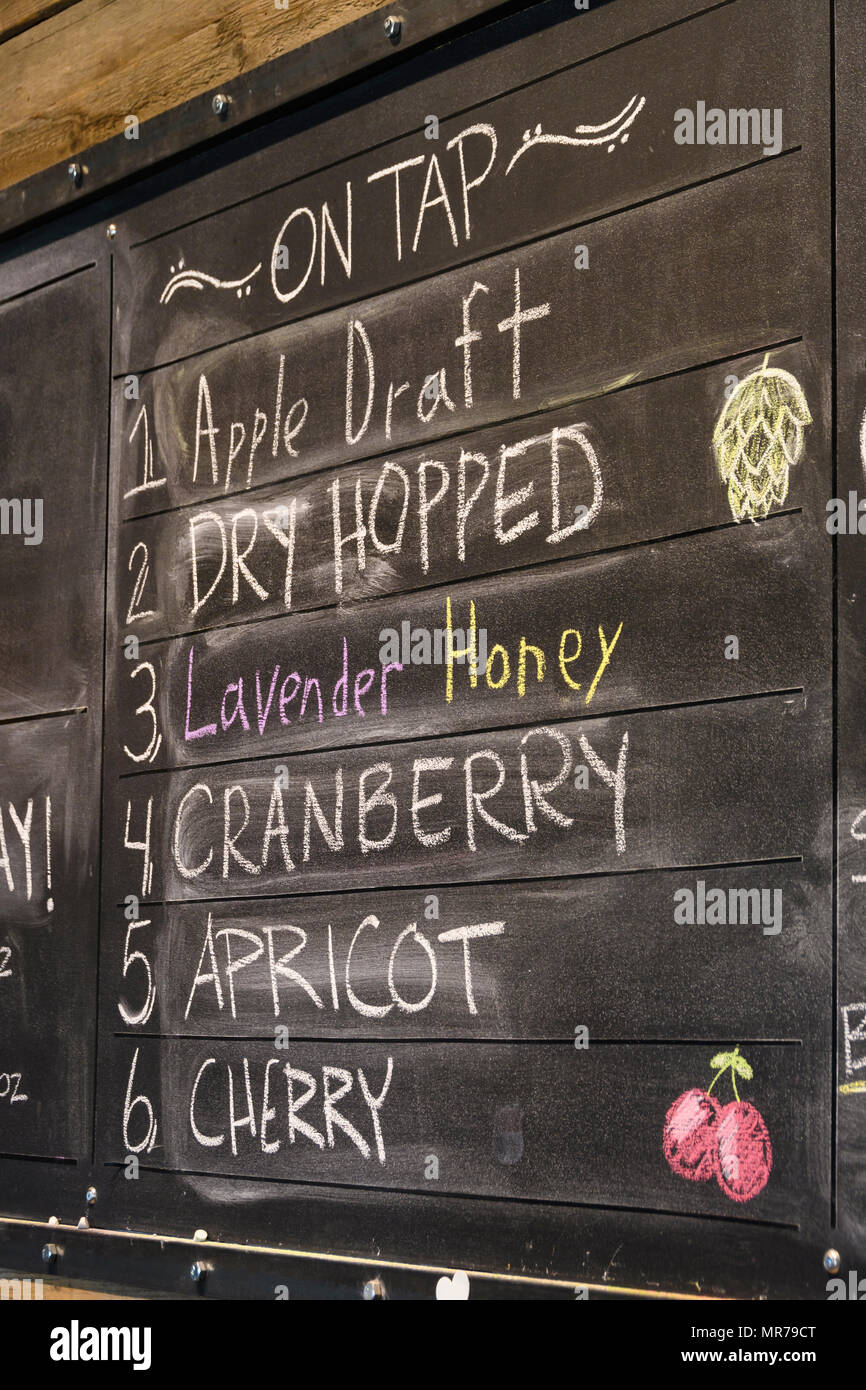 ON TAP
1 Apple Draft
2 DRY HOPPED
3 Lavender Honey
4 CRANBERRY
5 APRICOT
6 CHERRY
AY!
oz
alamy
Image ID: MR79CT
www.alamy.com